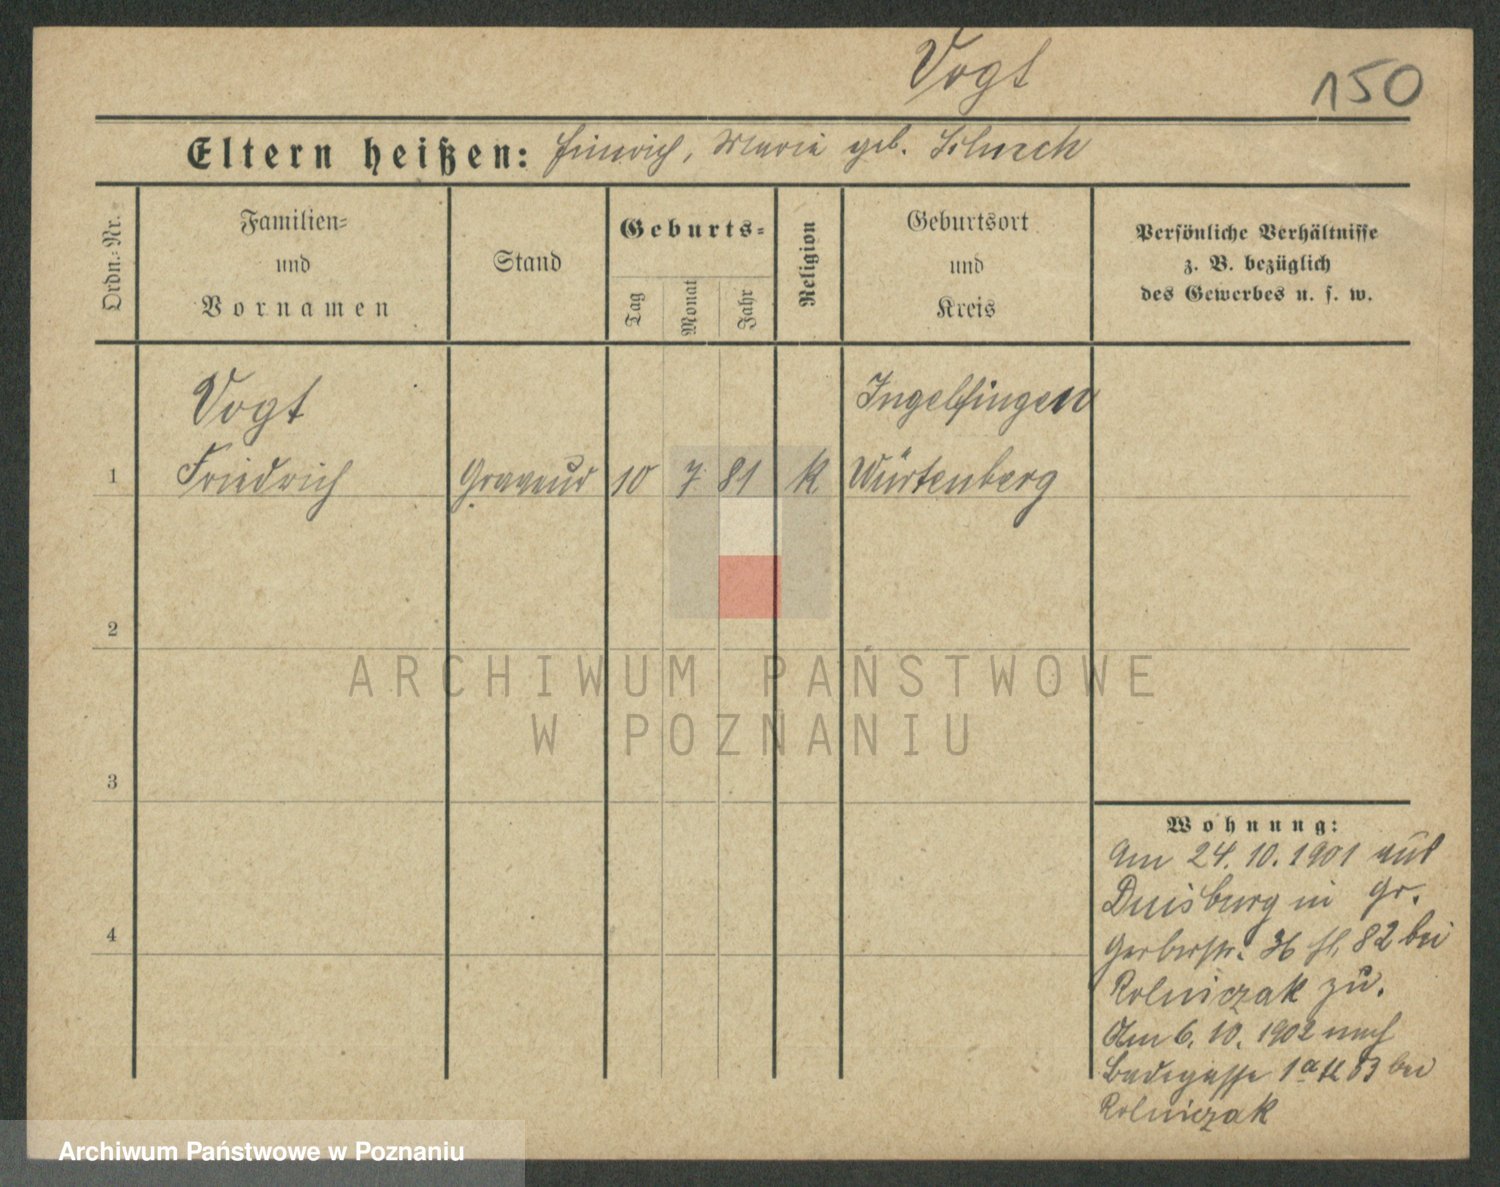 Vogt
150
Eltern heißen: Heinrich, Maria geb.
Ordn.-Nr.
Familien-
und
Vornamen
Stand
Geburts-
Tag
Monat
Jahr
Religion
Geburtsort
und
Kreis
Persönliche Verhältnisse
z. B. bezüglich
des Gewerbes u. s. w.
Vogt
Ingelfingen
1 Friedrich Graveur 10 7 81 k Würtenberg
2
ARCHIWUM PAŃSTWOWE
W POZNANIU
3
4
Wohnung:
Am 24. 10. 1901 aus
Duisburg in Gr.
Gerberstr. 36 fl. 82 bei
Rolniczak zu.
Am 6. 10. 1902 nach
Badegasse 1a fl 83 bei
Rolniczak
Archiwum Państwowe w Poznaniu